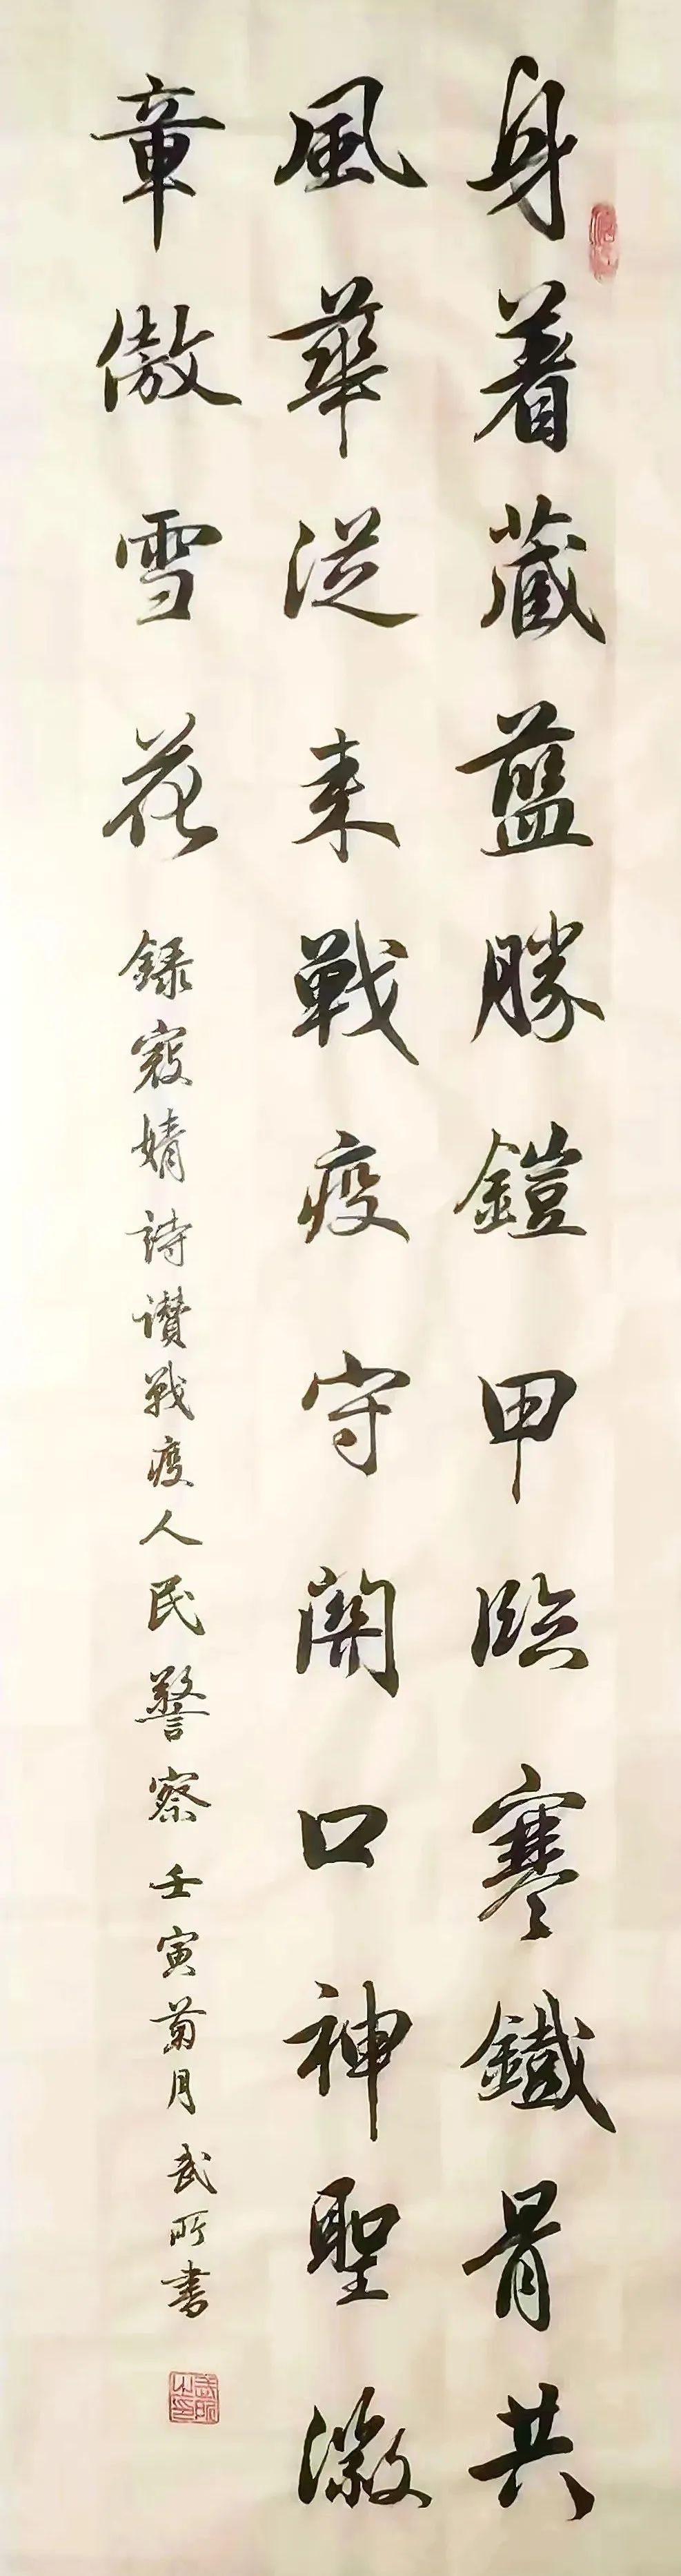 身着藏藍勝鎧甲臨寒鐵骨共
風華從来戰疫守關口神聖徽
章傲雪花
録寇婧詩讚戰疫人民警察壬寅菊月武所書